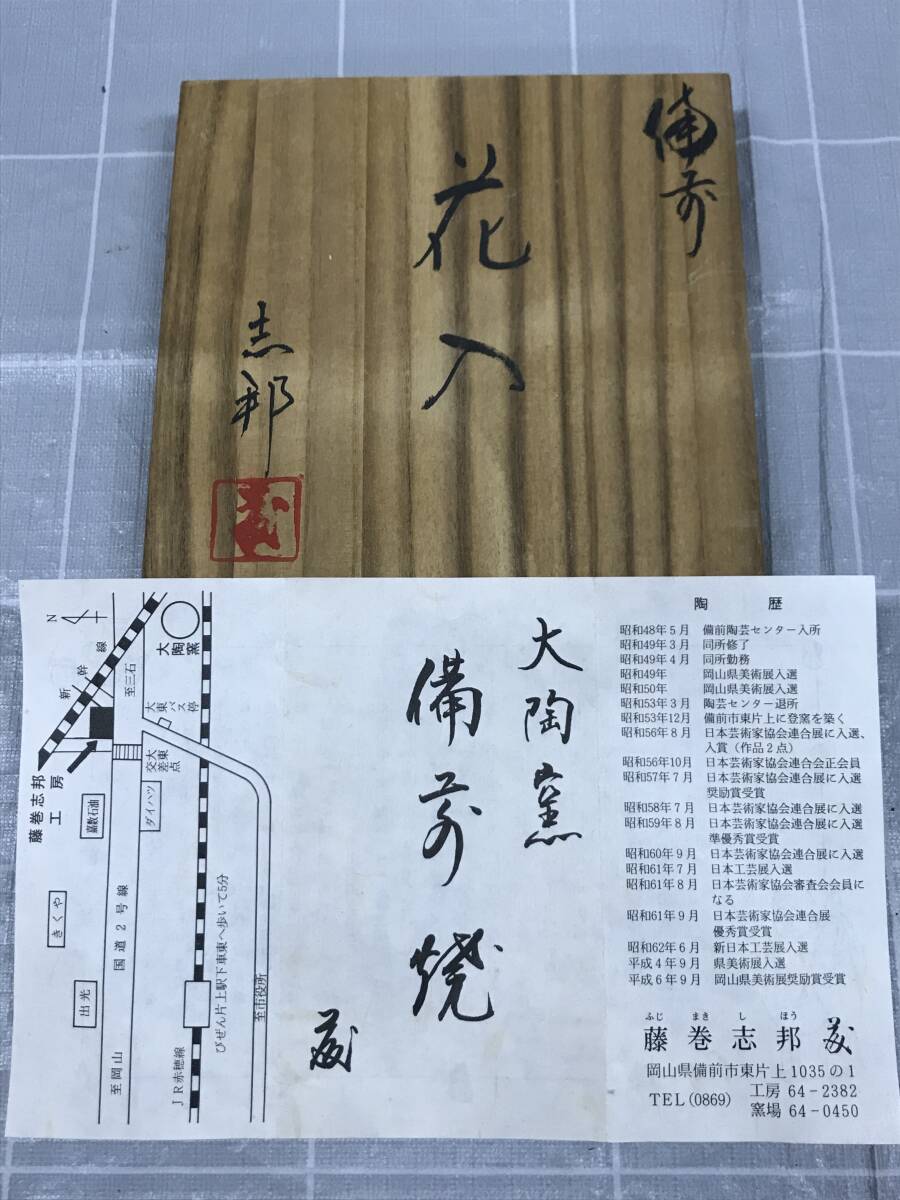 備前
花入
志邦
N
新幹線
至三石
大陶窯
大東バス停
大東交差点
藤巻志邦
工房
嘉数石油
ダイハツ
きくや
出光
国道2号線
至岡山
びぜん片上駅下車東へ歩いて5分
至市役所
JR赤穂線
大陶窯
備前焼
陶歴
昭和48年5月 備前陶芸センター入所
昭和49年3月 同所修了
昭和49年4月 同所勤務
昭和49年 岡山県美術展入選
昭和50年 岡山県美術展入選
昭和53年3月 陶芸センター退所
昭和53年12月 備前市東片上に登窯を築く
昭和56年8月 日本芸術家協会連合展に入選、
入賞(作品2点)
昭和56年10月 日本芸術家協会連合会正会員
昭和57年7月 日本芸術家協会連合展に入選
奨励賞受賞
昭和58年7月 日本芸術家協会連合展に入選
昭和59年8月 日本芸術家協会連合展に入選
準優秀賞受賞
昭和60年9月 日本芸術家協会連合展に入選
昭和61年7月 日本工芸展入選
昭和61年8月 日本芸術家協会審査会会員に
なる
昭和61年9月 日本芸術家協会連合展
優秀賞受賞
昭和62年6月 新日本工芸展入選
平成4年9月 県美術展入選
平成6年9月 岡山県美術展奨励賞受賞
ふじ まき し ほう
藤巻志邦
岡山県備前市東片上1035の1
TEL(0869) 工房 64-2382
窯場 64-0450